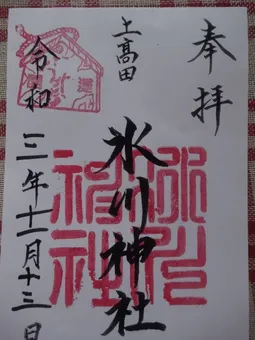 奉拝
上高田
氷川神社
氷川神社
令和三年十二月十三日